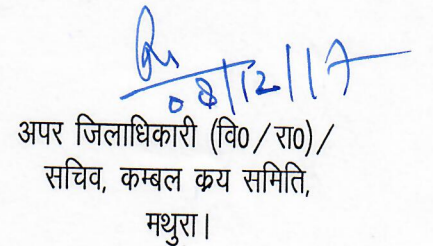 08/12/17
अपर जिलाधिकारी (वि0/रा0)/
सचिव, कम्बल क्रय समिति,
मथुरा।